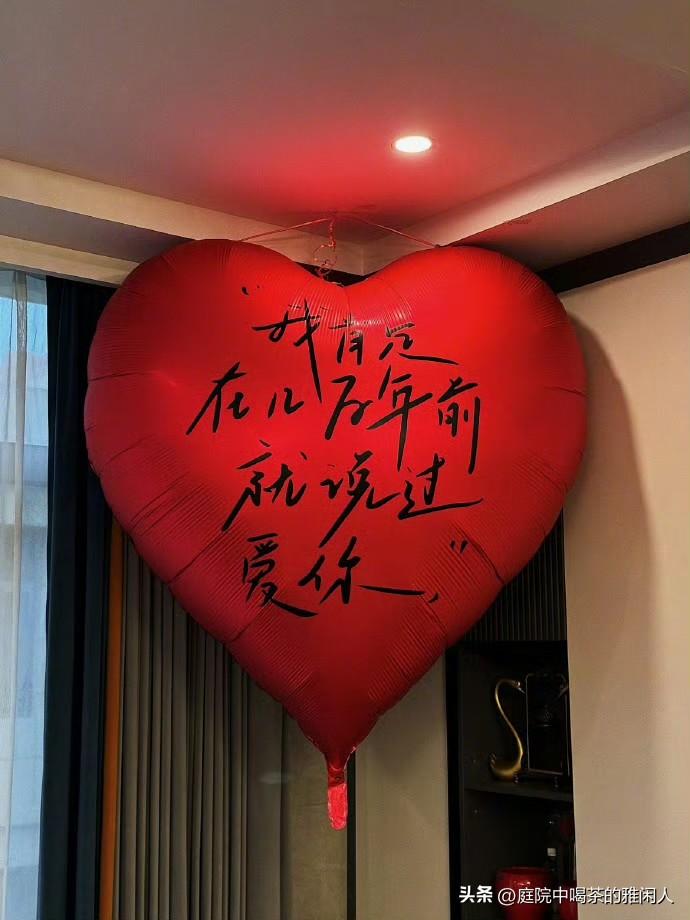 “我肯定
在几百年前
就说过
爱你,”
头条 @庭院中喝茶的雅闲人